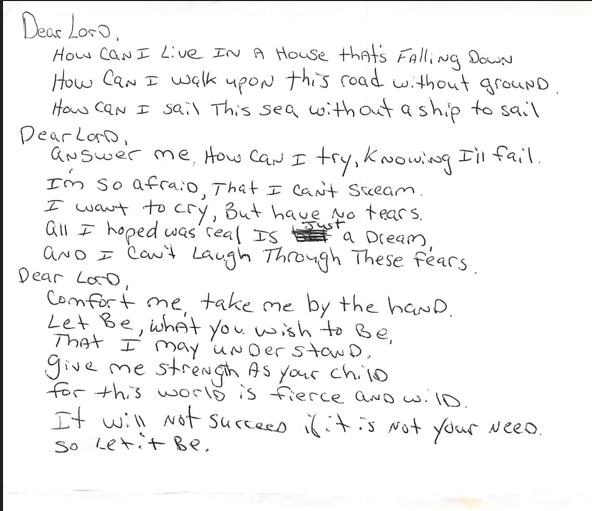 Dear Lord,
How can I Live IN A House that's Falling Down
How Can I walk upon this road without ground.
How can I sail This sea without a ship to sail
Dear Lord,
answer me, How can I try, Knowing I'll fail.
I'm so afraid, That I can't scream.
I want to cry, But have No tears.
all I hoped was real Is Just a Dream,
and I can't Laugh Through These fears.
Dear Lord,
Comfort me, take me by the hand.
Let Be, what you wish to Be,
That I may understand.
Give me strength As your child
for this world is fierce and wild.
It will Not succeed if it is Not your Need.
So Let it Be.